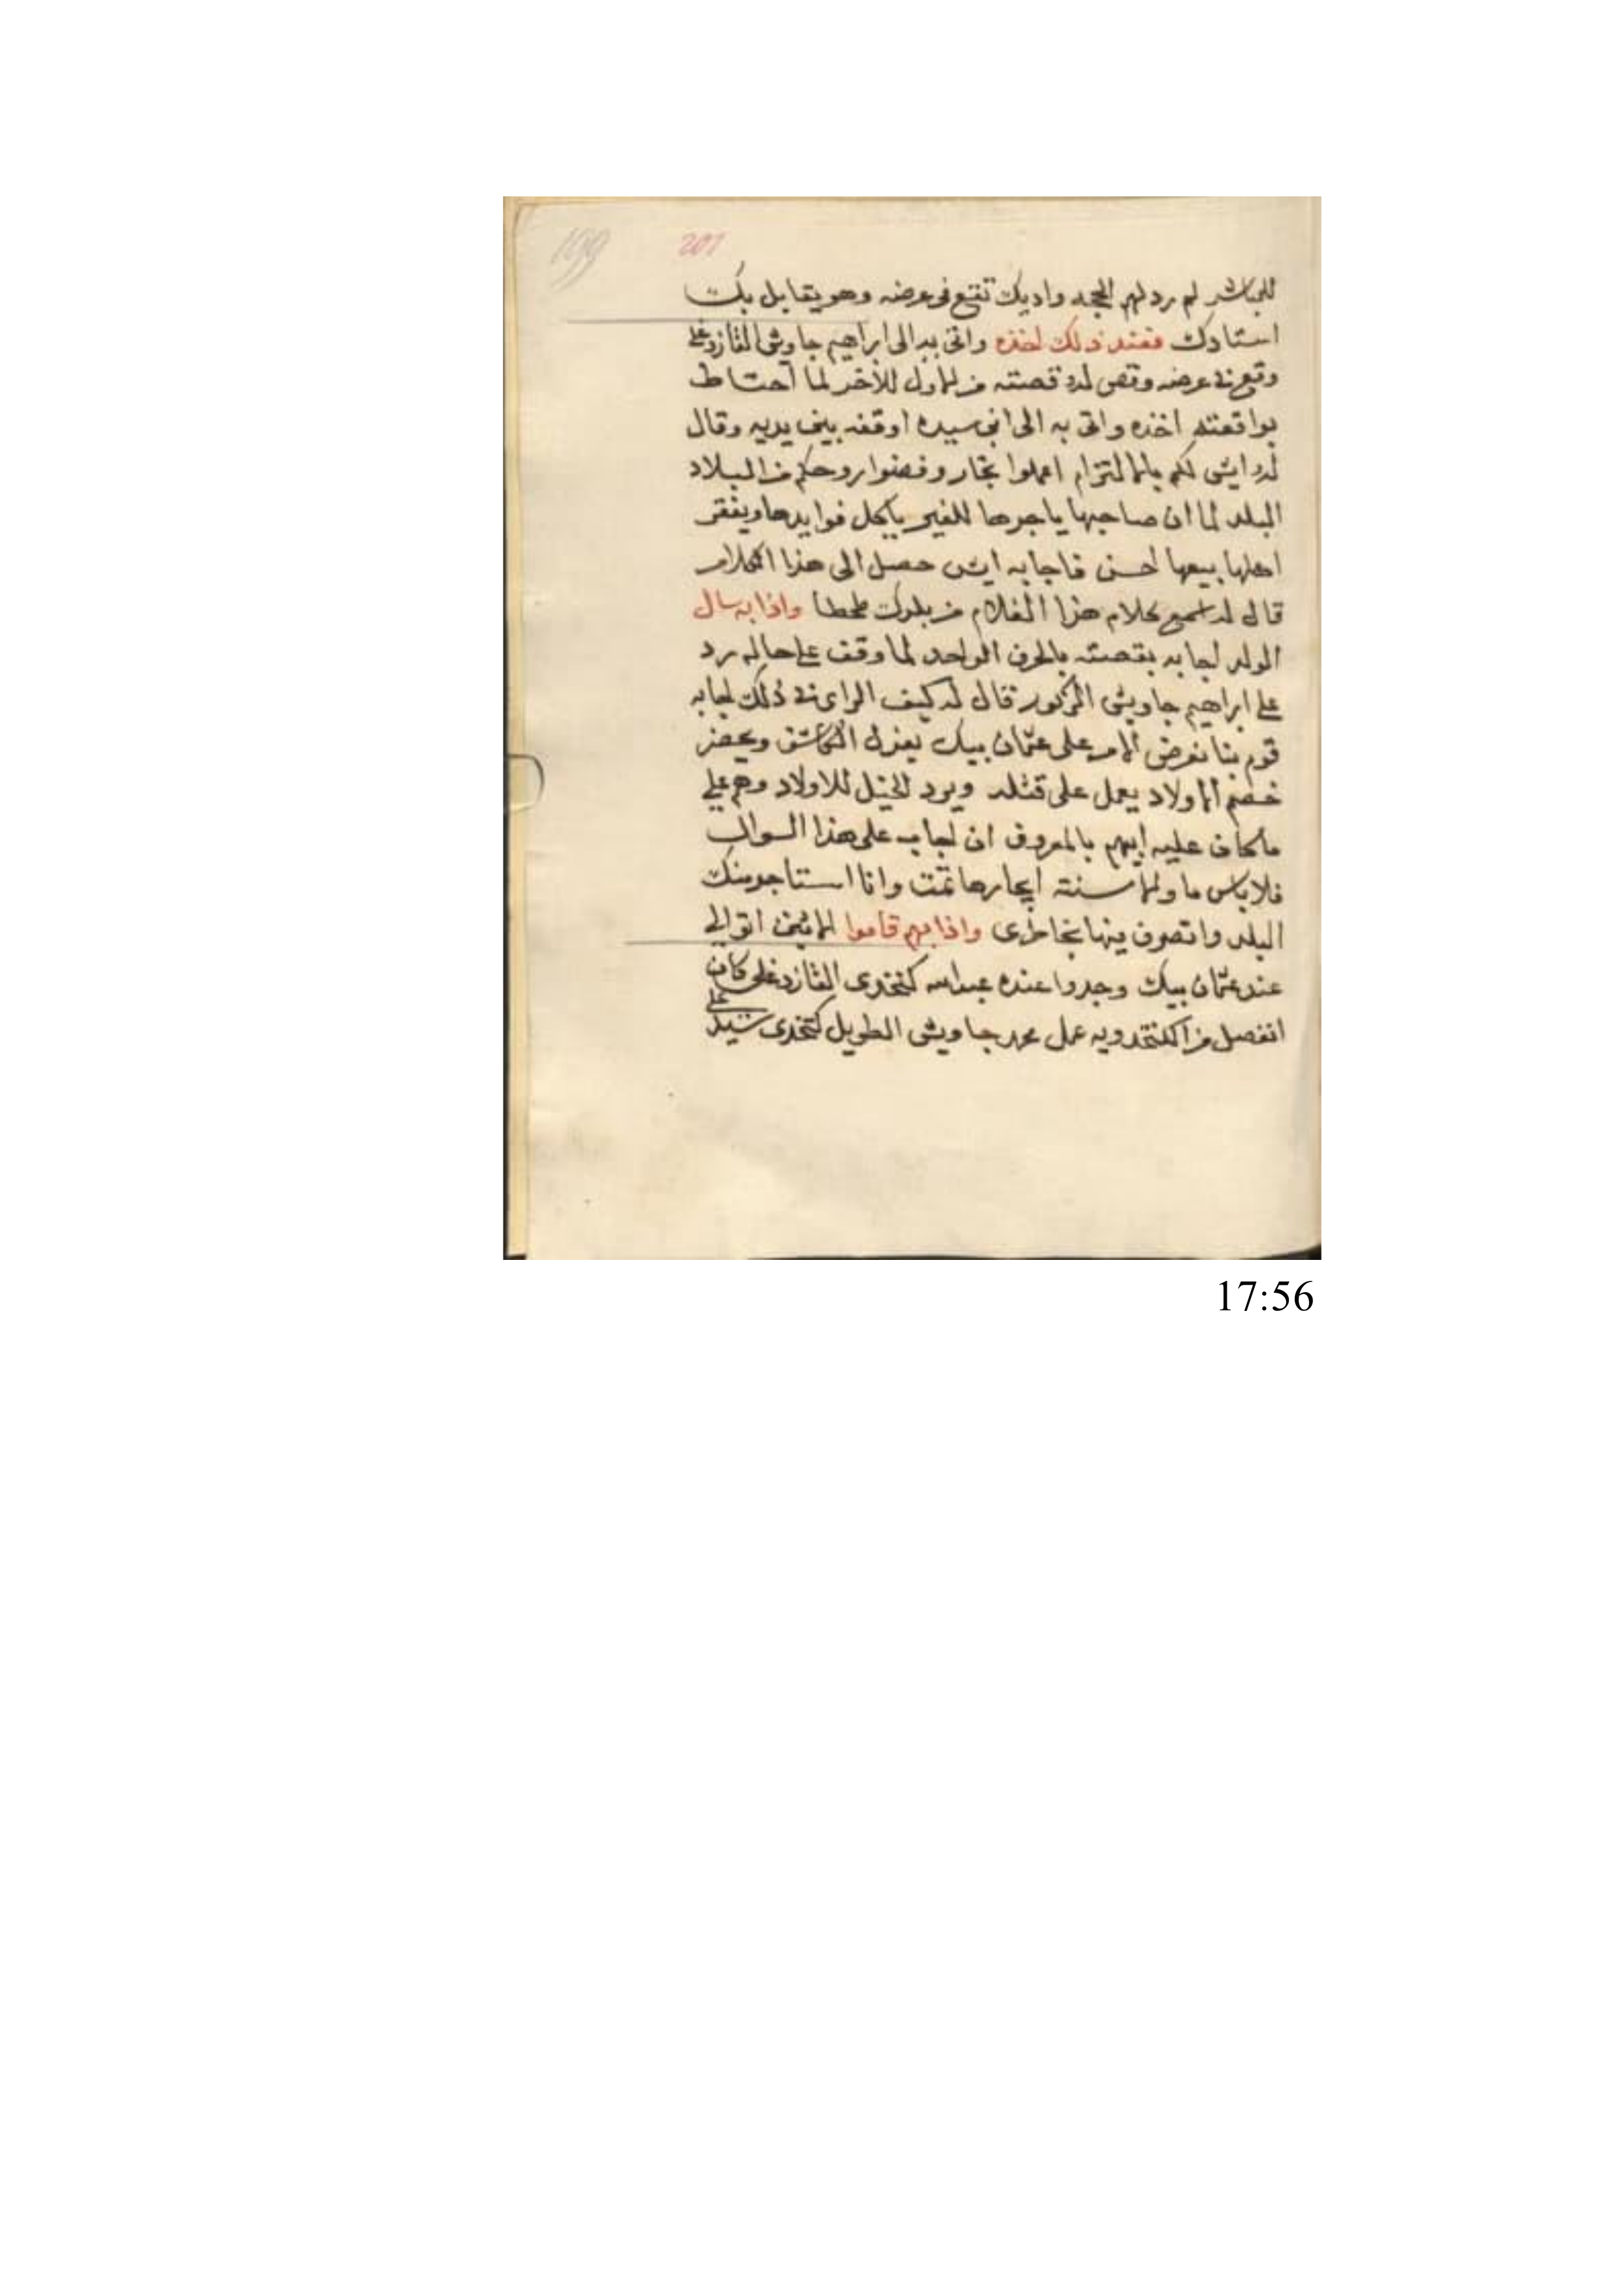 199 201
للمباشر لم رد لهم الحجه واديك تقع في عرضه وهو يقابل بك
استادك فعند ذلك اخذه واتى به الى ابراهيم جاويش القازدغلي
وقع في عرضه وقص له قصته من الاول للأخر لما احتاط
بواقعته اخذه واتى به الى ابن سيده اوقفه بين يديه وقال
له ايش لكم بالالتزام اعملوا تجار وفضوا روحكم من البلاد
البلد لما ان صاحبها ياجرها للغير ياكل فوايدها ويفقر
اهلها بيعها احسن فاجابه ايش حصل الى هذا الكلام
قال له اسمع كلام هذا الغلام من بلدك طحطا واذا به سال
الولد اجابه بقصته بالحرف الواحد لما وقف على حاله رد
على ابراهيم جاويش المذكور قال له كيف الراي في ذلك اجابه
قوم بنا نعرض الامر على عثمان بيك يعزل الكاشف ويحضر
خصم الاولاد يعمل على قتله ويرد الخيل للاولاد وهم على
ما كان عليه ابيهم بالمعروف ان اجاب على هذا السوال
فلا باس ما ولا سنة ايجارها تمت وانا استاجر منك
البلد واتصرف فيها بخاطري واذا بهم قاموا الاثنين اتو الي
عند عثمان بيك وجدوا عنده عبدالله كتخدى القازدغلى كان
انفصل من الكتخدويه عمل محمد جاويش الطويل كتخدى
17:56